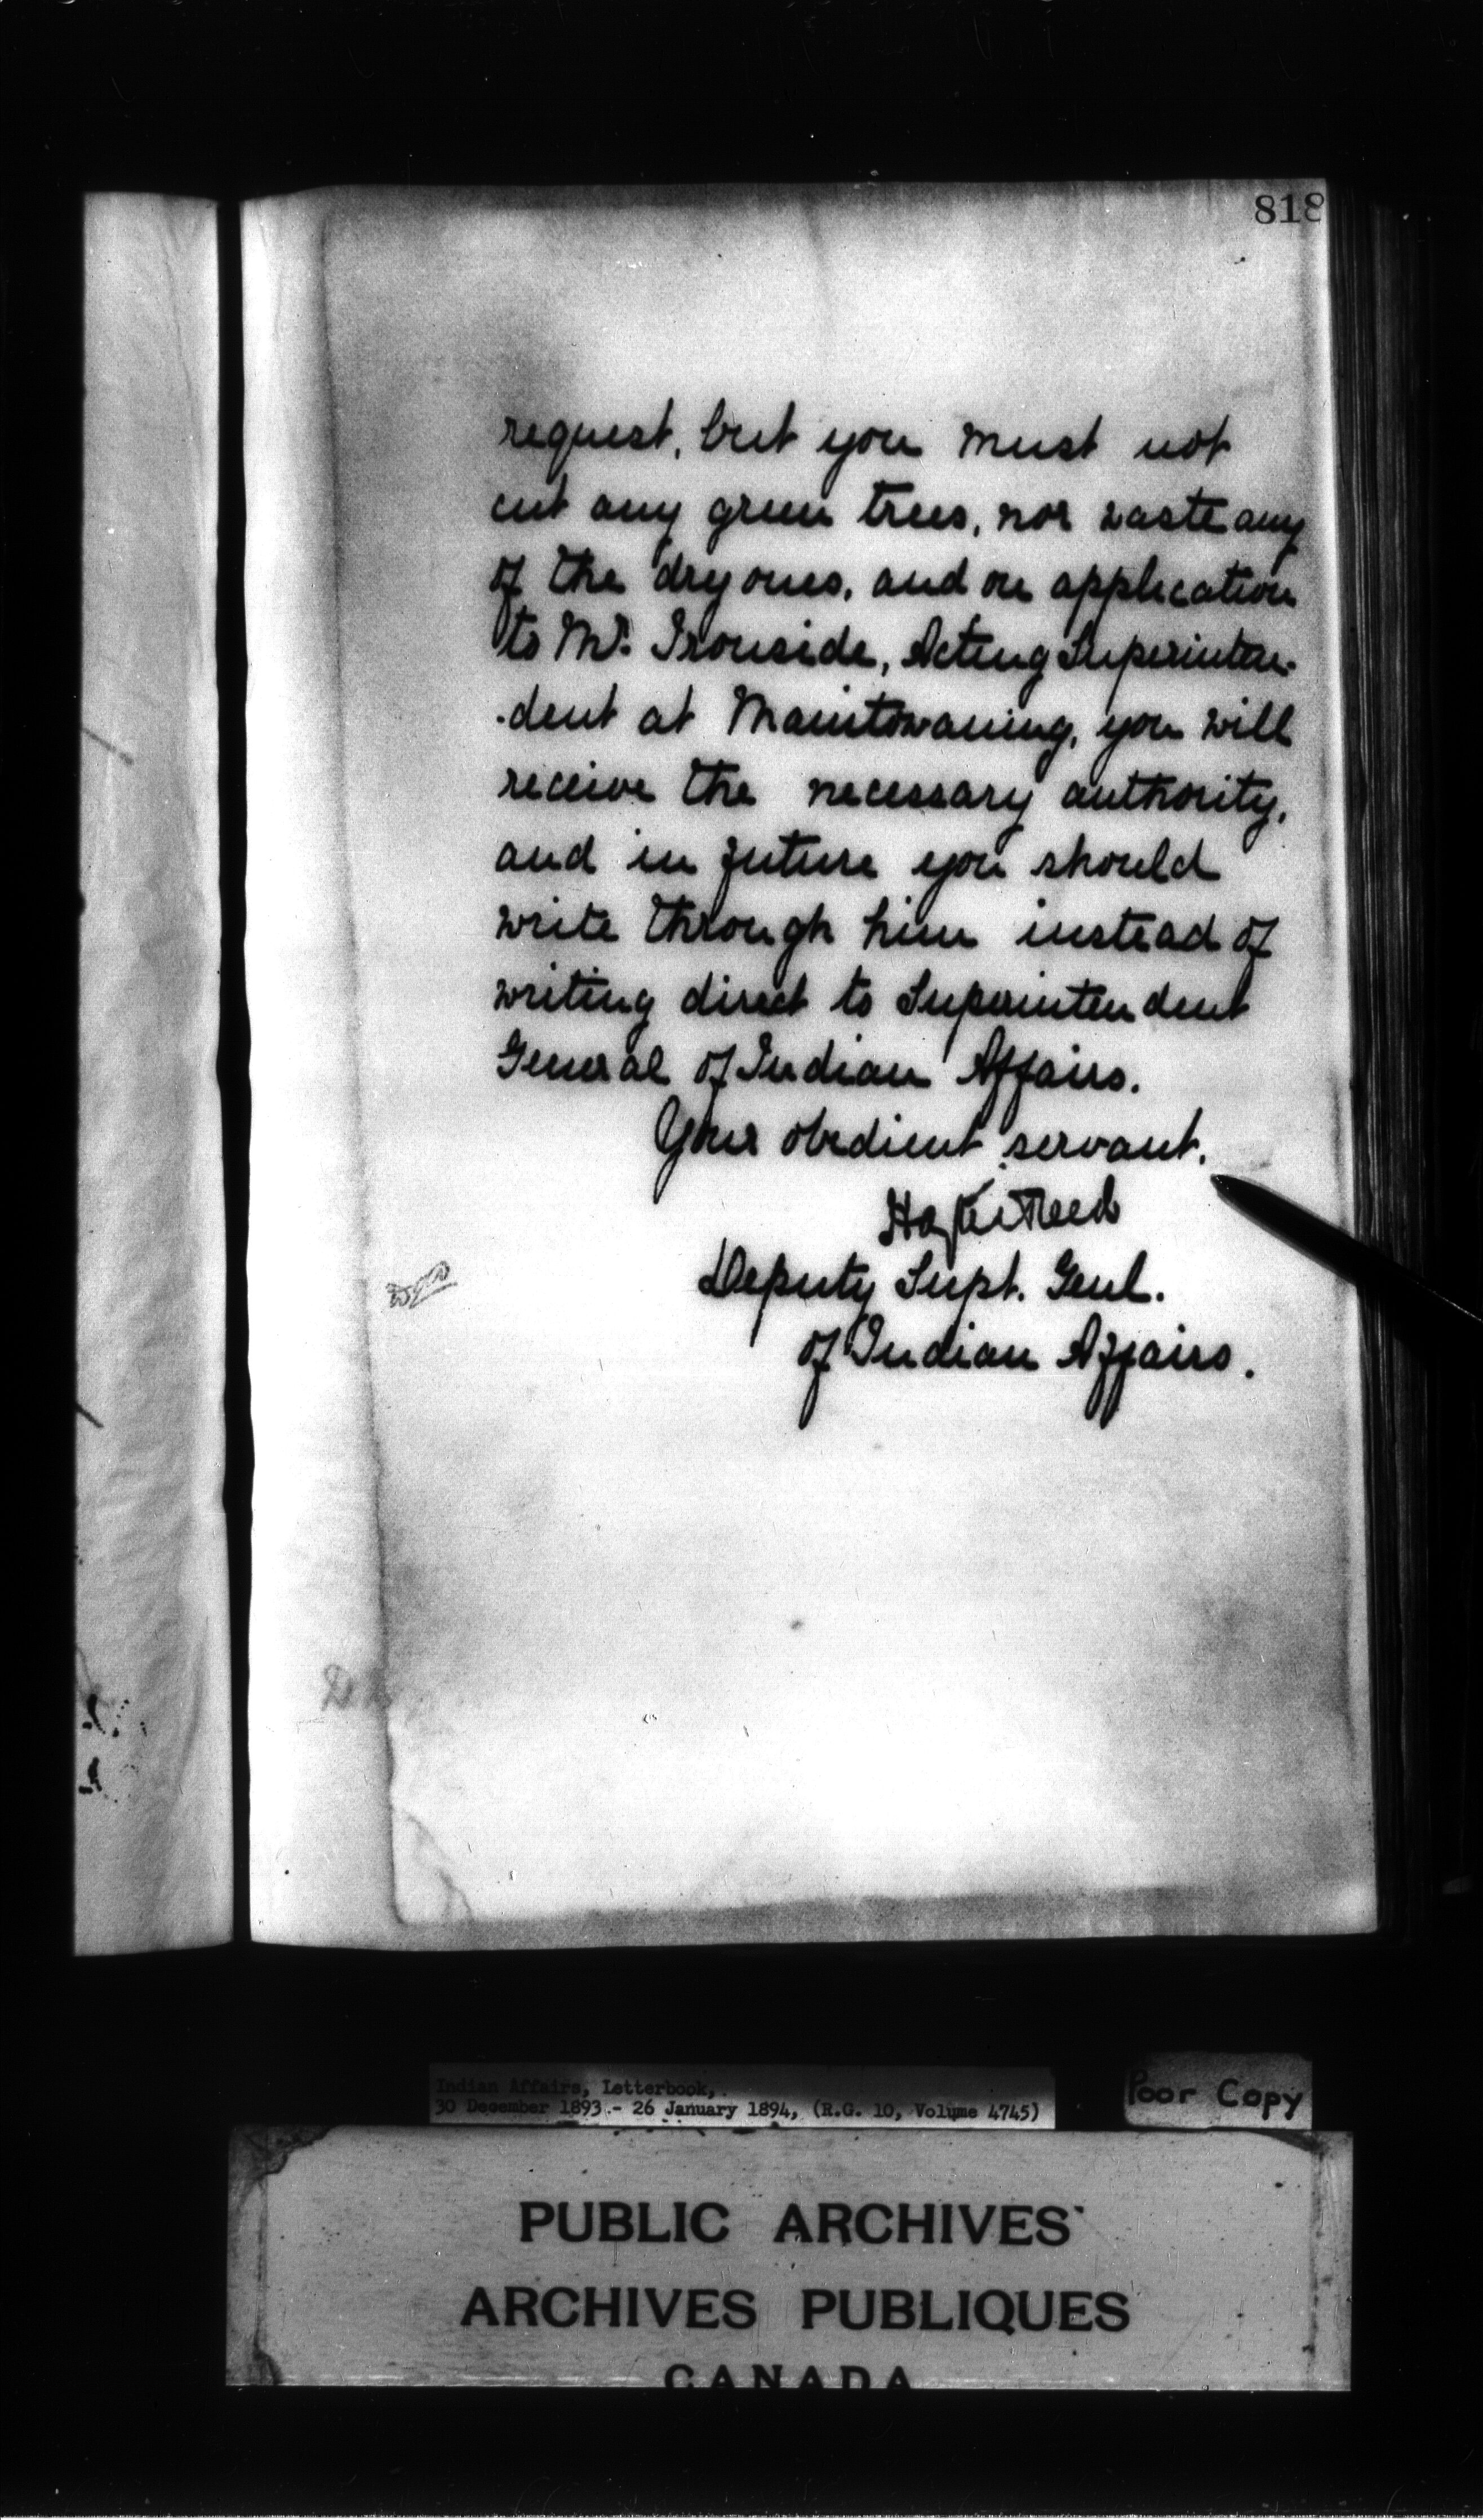 818
request, but you must not
cut any green trees, nor waste any
of the dry ones, and on application
to Mr. Ironside, Acting Superinten-
-dent at Manitowaning, you will
receive the necessary authority,
and in future you should
write through him instead of
writing direct to Superintendent
General of Indian Affairs.
Your obedient servant.
Hayter Reed
Deputy Supt. Genl.
of Indian Affairs.
Indian Affairs, Letterbook,
30 December 1893 - 26 January 1894, (R.G. 10, Volume 4745)
Poor Copy
PUBLIC ARCHIVES
ARCHIVES PUBLIQUES
CANADA